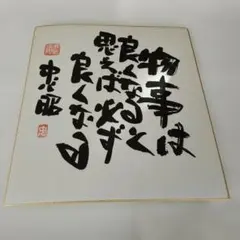 物事は
良くなると
思えば必ず
良くなる
忠昭